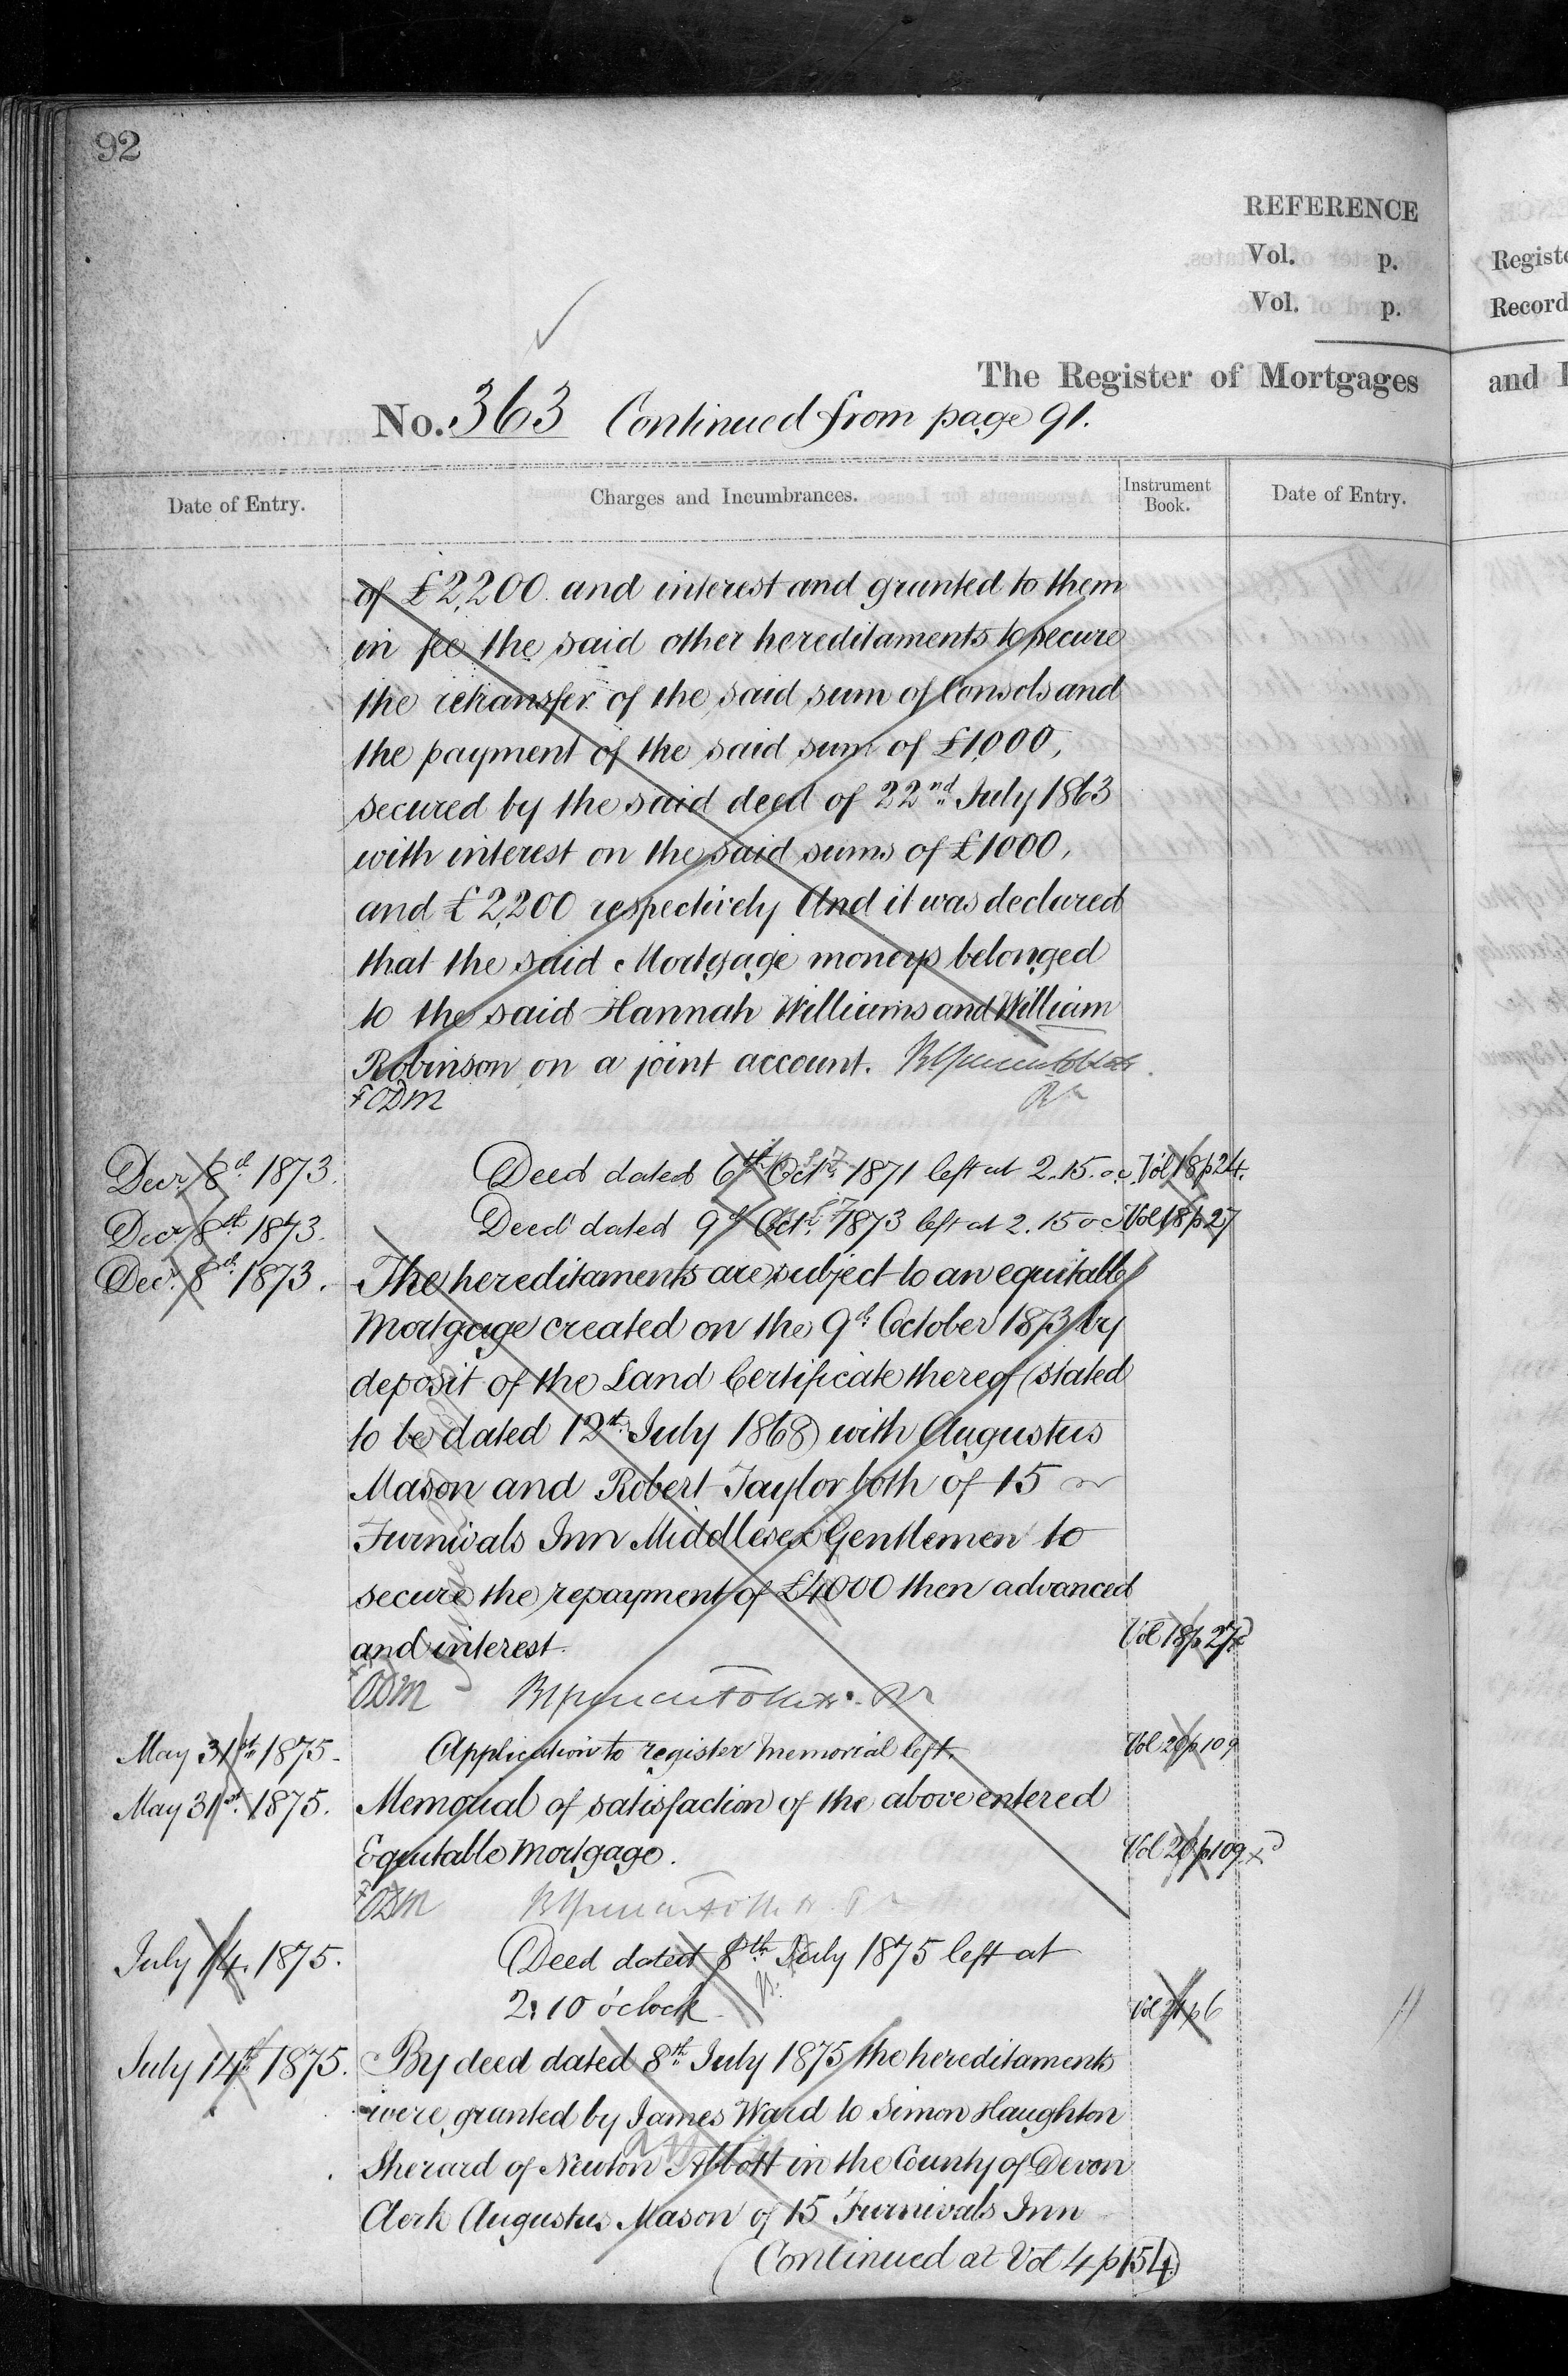 92
REFERENCE
Vol. p.
Vol. p.
The Register of Mortgages
No. 363 Continued from page 91.
Date of Entry. Charges and Incumbrances. Instrument Book. Date of Entry.
of £2,200 and interest and granted to them
in fee the said other hereditaments to secure
the retransfer of the said sum of Consols and
the payment of the said sum of £1,000,
secured by the said deed of 22nd July 1863
with interest on the said sums of £1000,
and £2,200 respectively And it was declared
that the said Mortgage moneys belonged
to the said Hannah Williams and William
Robinson on a joint account.
ODM
Decr 8th 1873. Deed dated 6th Octr 1871 left at 2.15. o.c. Vol 18 p 24.
Decr 8th 1873. Deed dated 9th Octr 1873 left at 2.15 o c Vol 18 p 27
Decr 8th 1873. The hereditaments are subject to an equitable
Mortgage created on the 9th October 1873 by
deposit of the Land Certificate thereof (stated
to be dated 12th July 1868) with Augustus
Mason and Robert Taylor both of 15
Furnivals Inn Middlesex Gentlemen to
secure the repayment of £4000 then advanced
and interest. Vol 18 p 27
ODM
May 31st 1875. Application to register Memorial left. Vol 20 p 109
May 31st 1875. Memorial of satisfaction of the above entered
Equitable Mortgage. Vol 20 p 109
ODM
July 14. 1875. Deed dated 8th July 1875 left at
2.10 o'clock. Vol 21 p 6
July 14th 1875. By deed dated 8th July 1875 the hereditaments
were granted by James Ward to Simon Haughton
Sherard of Newton Abbott in the County of Devon
Clerk Augustus Mason of 15 Furnivals Inn
(Continued at Vol 4 p 154)
Registe
Record
and